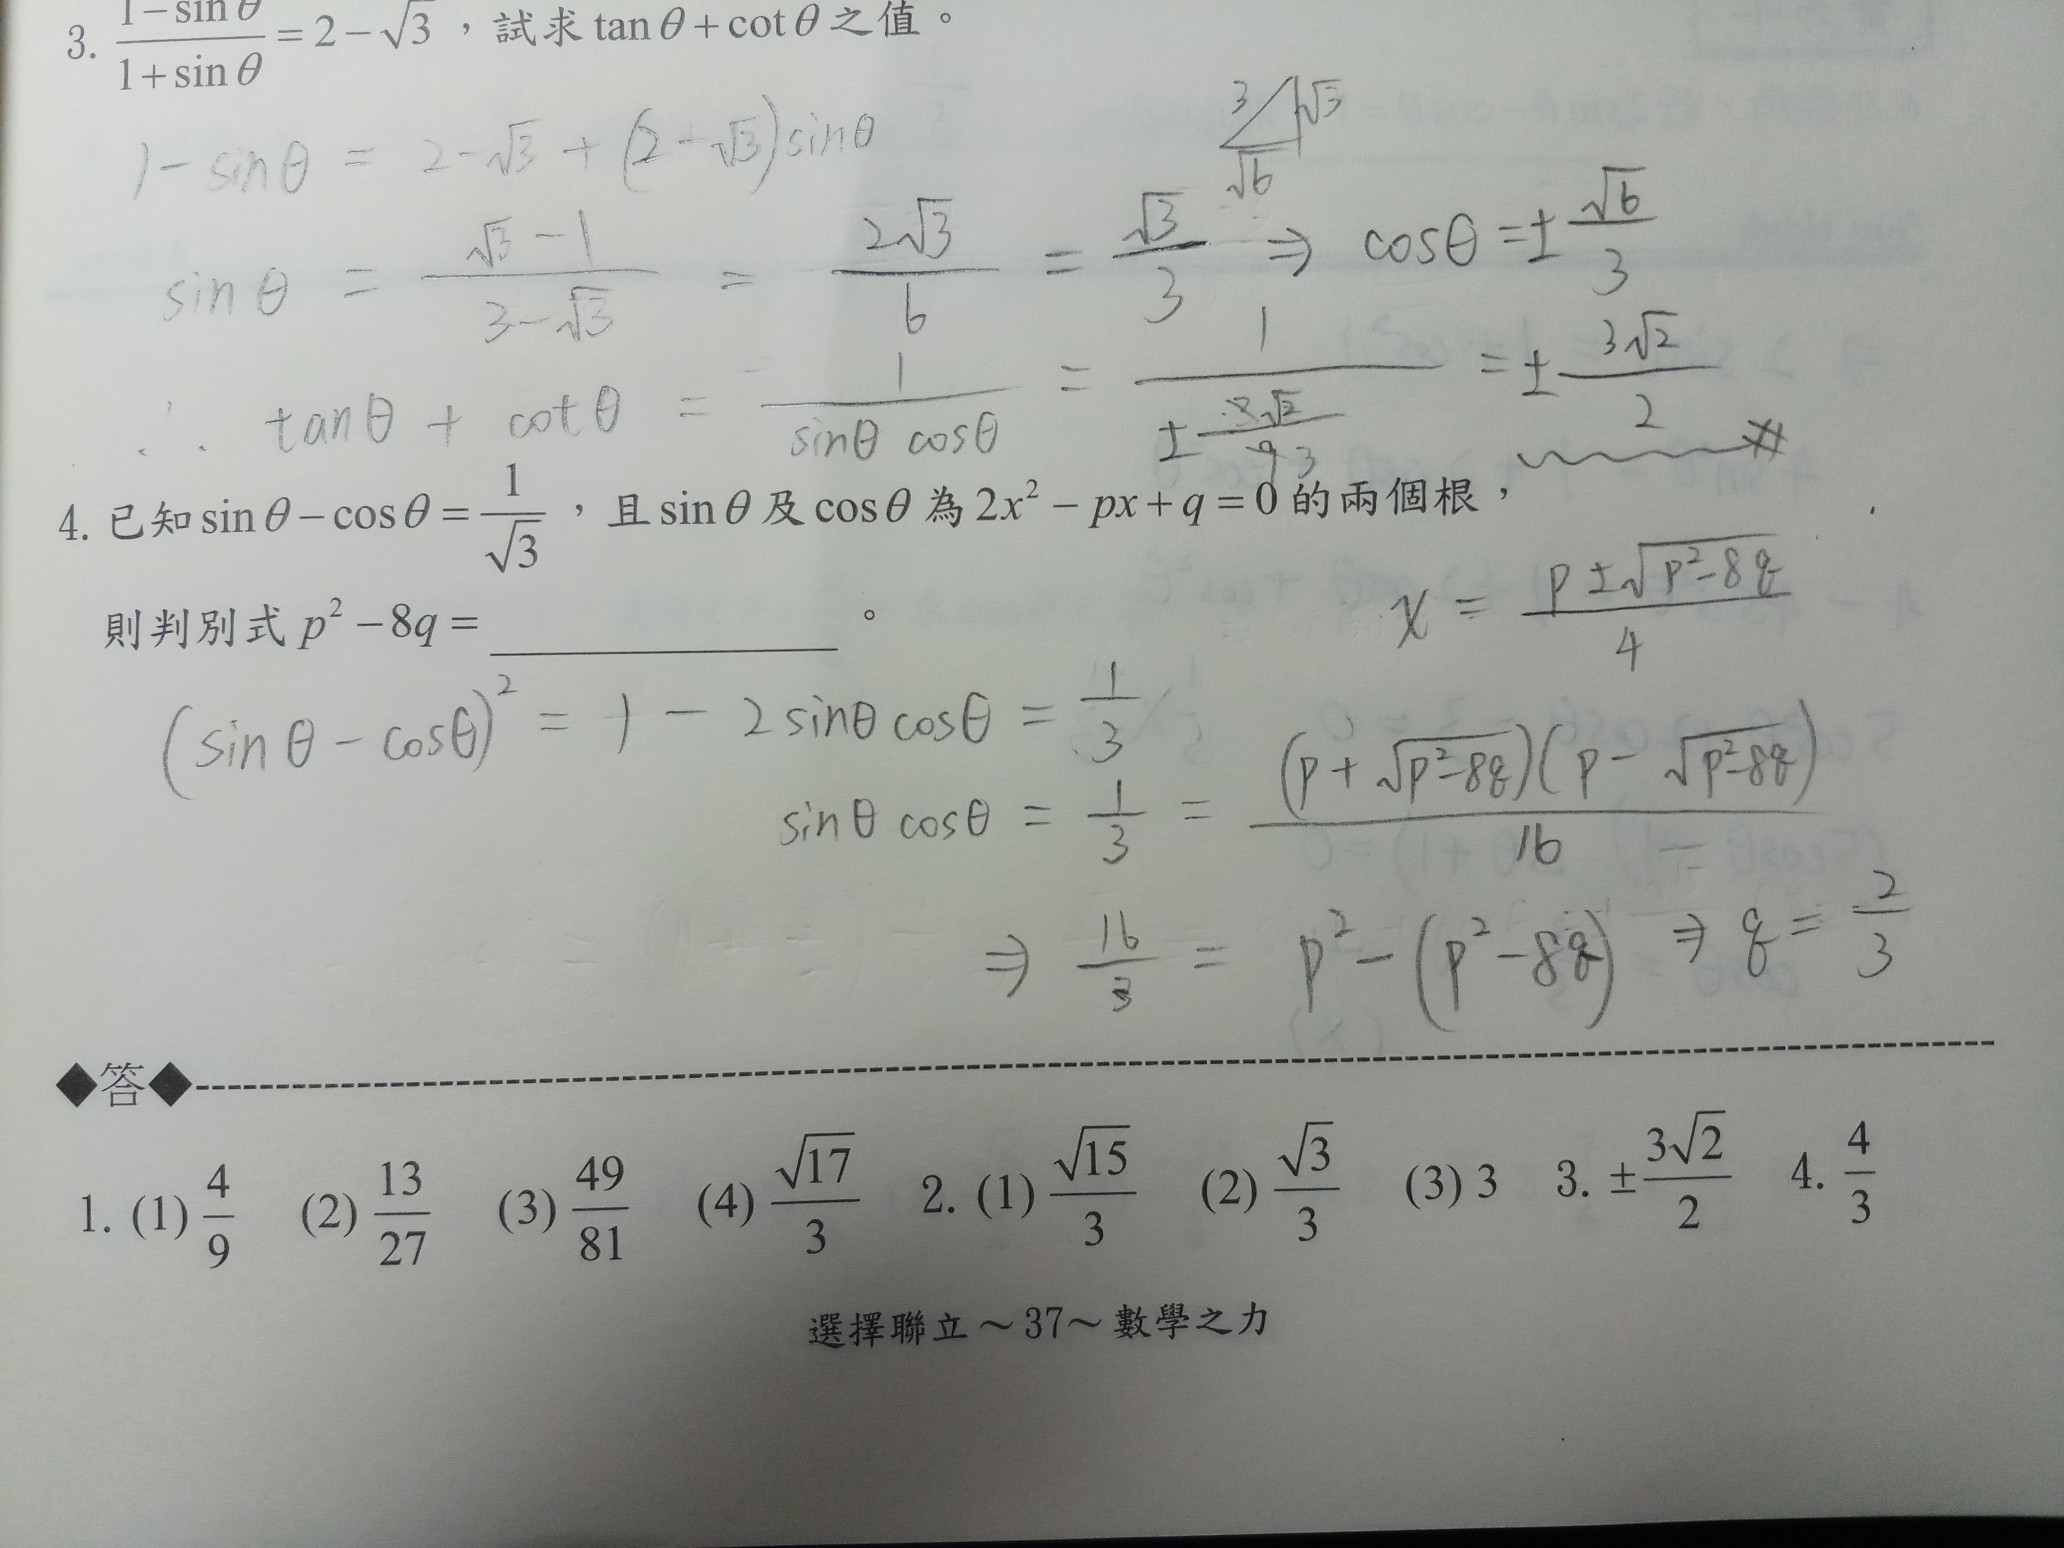 3. (1-sinθ)/(1+sinθ) = 2-√3，試求 tanθ+cotθ 之值。
1-sinθ = 2-√3 + (2-√3)sinθ
3 √3 √6
sinθ = (√3-1)/(3-√3) = 2√3/6 = √3/3 ⇒ cosθ = ±√6/3
∴ tanθ + cotθ = 1/(sinθ cosθ) = 1/(±√2/3) = ±3√2/2
4. 已知 sinθ-cosθ = 1/√3，且 sinθ 及 cosθ 為 2x²-px+q=0 的兩個根，
則判別式 p²-8q = ________。
x = (p±√(p²-8q))/4
(sinθ-cosθ)² = 1 - 2sinθcosθ = 1/3
sinθcosθ = 1/3 = (p+√(p²-8q))(p-√(p²-8q))/16
⇒ 16/3 = p²-(p²-8q) ⇒ q = 2/3
◆答◆
1. (1) 4/9 (2) 13/27 (3) 49/81 (4) √17/3 2. (1) √15/3 (2) √3/3 (3) 3 3. ±3√2/2 4. 4/3
選擇聯立～37～數學之力